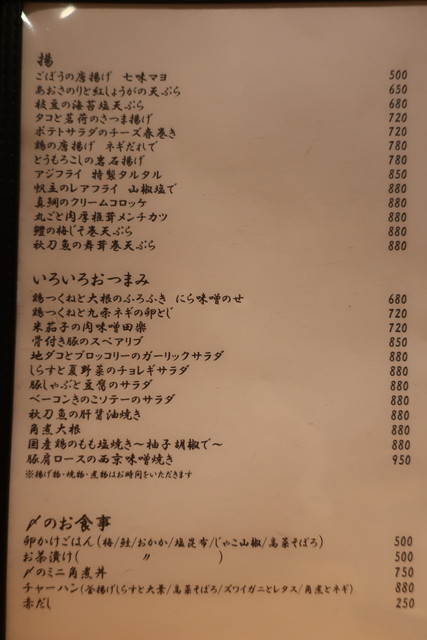 揚
ごぼうの唐揚げ 七味マヨ 500
あおさのりと紅しょうがの天ぷら 650
枝豆の海苔塩天ぷら 680
タコと茗荷のさつま揚げ 720
ポテトサラダのチーズ春巻き 720
鶏の唐揚げ ネギだれで 780
とうもろこしの岩石揚げ 780
アジフライ 特製タルタル 850
帆立のレアフライ 山椒塩で 880
真鯛のクリームコロッケ 880
丸ごと肉厚椎茸メンチカツ 880
鱧の梅じそ巻天ぷら 880
秋刀魚の舞茸巻天ぷら 880
いろいろおつまみ
鶏つくねと大根のふろふき にら味噌のせ 680
鶏つくねと九条ネギの卵とじ 720
米茄子の肉味噌田楽 720
骨付き豚のスペアリブ 850
地ダコとブロッコリーのガーリックサラダ 880
しらすと夏野菜のチョレギサラダ 880
豚しゃぶと豆腐のサラダ 880
ベーコンきのこソテーのサラダ 880
秋刀魚の肝醤油焼き 880
角煮大根 880
国産鶏のもも塩焼き〜柚子胡椒で〜 880
豚肩ロースの西京味噌焼き 950
※揚げ物・焼物・煮物はお時間をいただきます
〆のお食事
卵かけごはん(梅/鮭/おかか/塩昆布/じゃこ山椒/高菜そぼろ) 500
お茶漬け( 〃 ) 500
〆のミニ角煮丼 750
チャーハン(釜揚げしらすと大葉/高菜そぼろ/ズワイガニとレタス/角煮とネギ) 880
赤だし 250